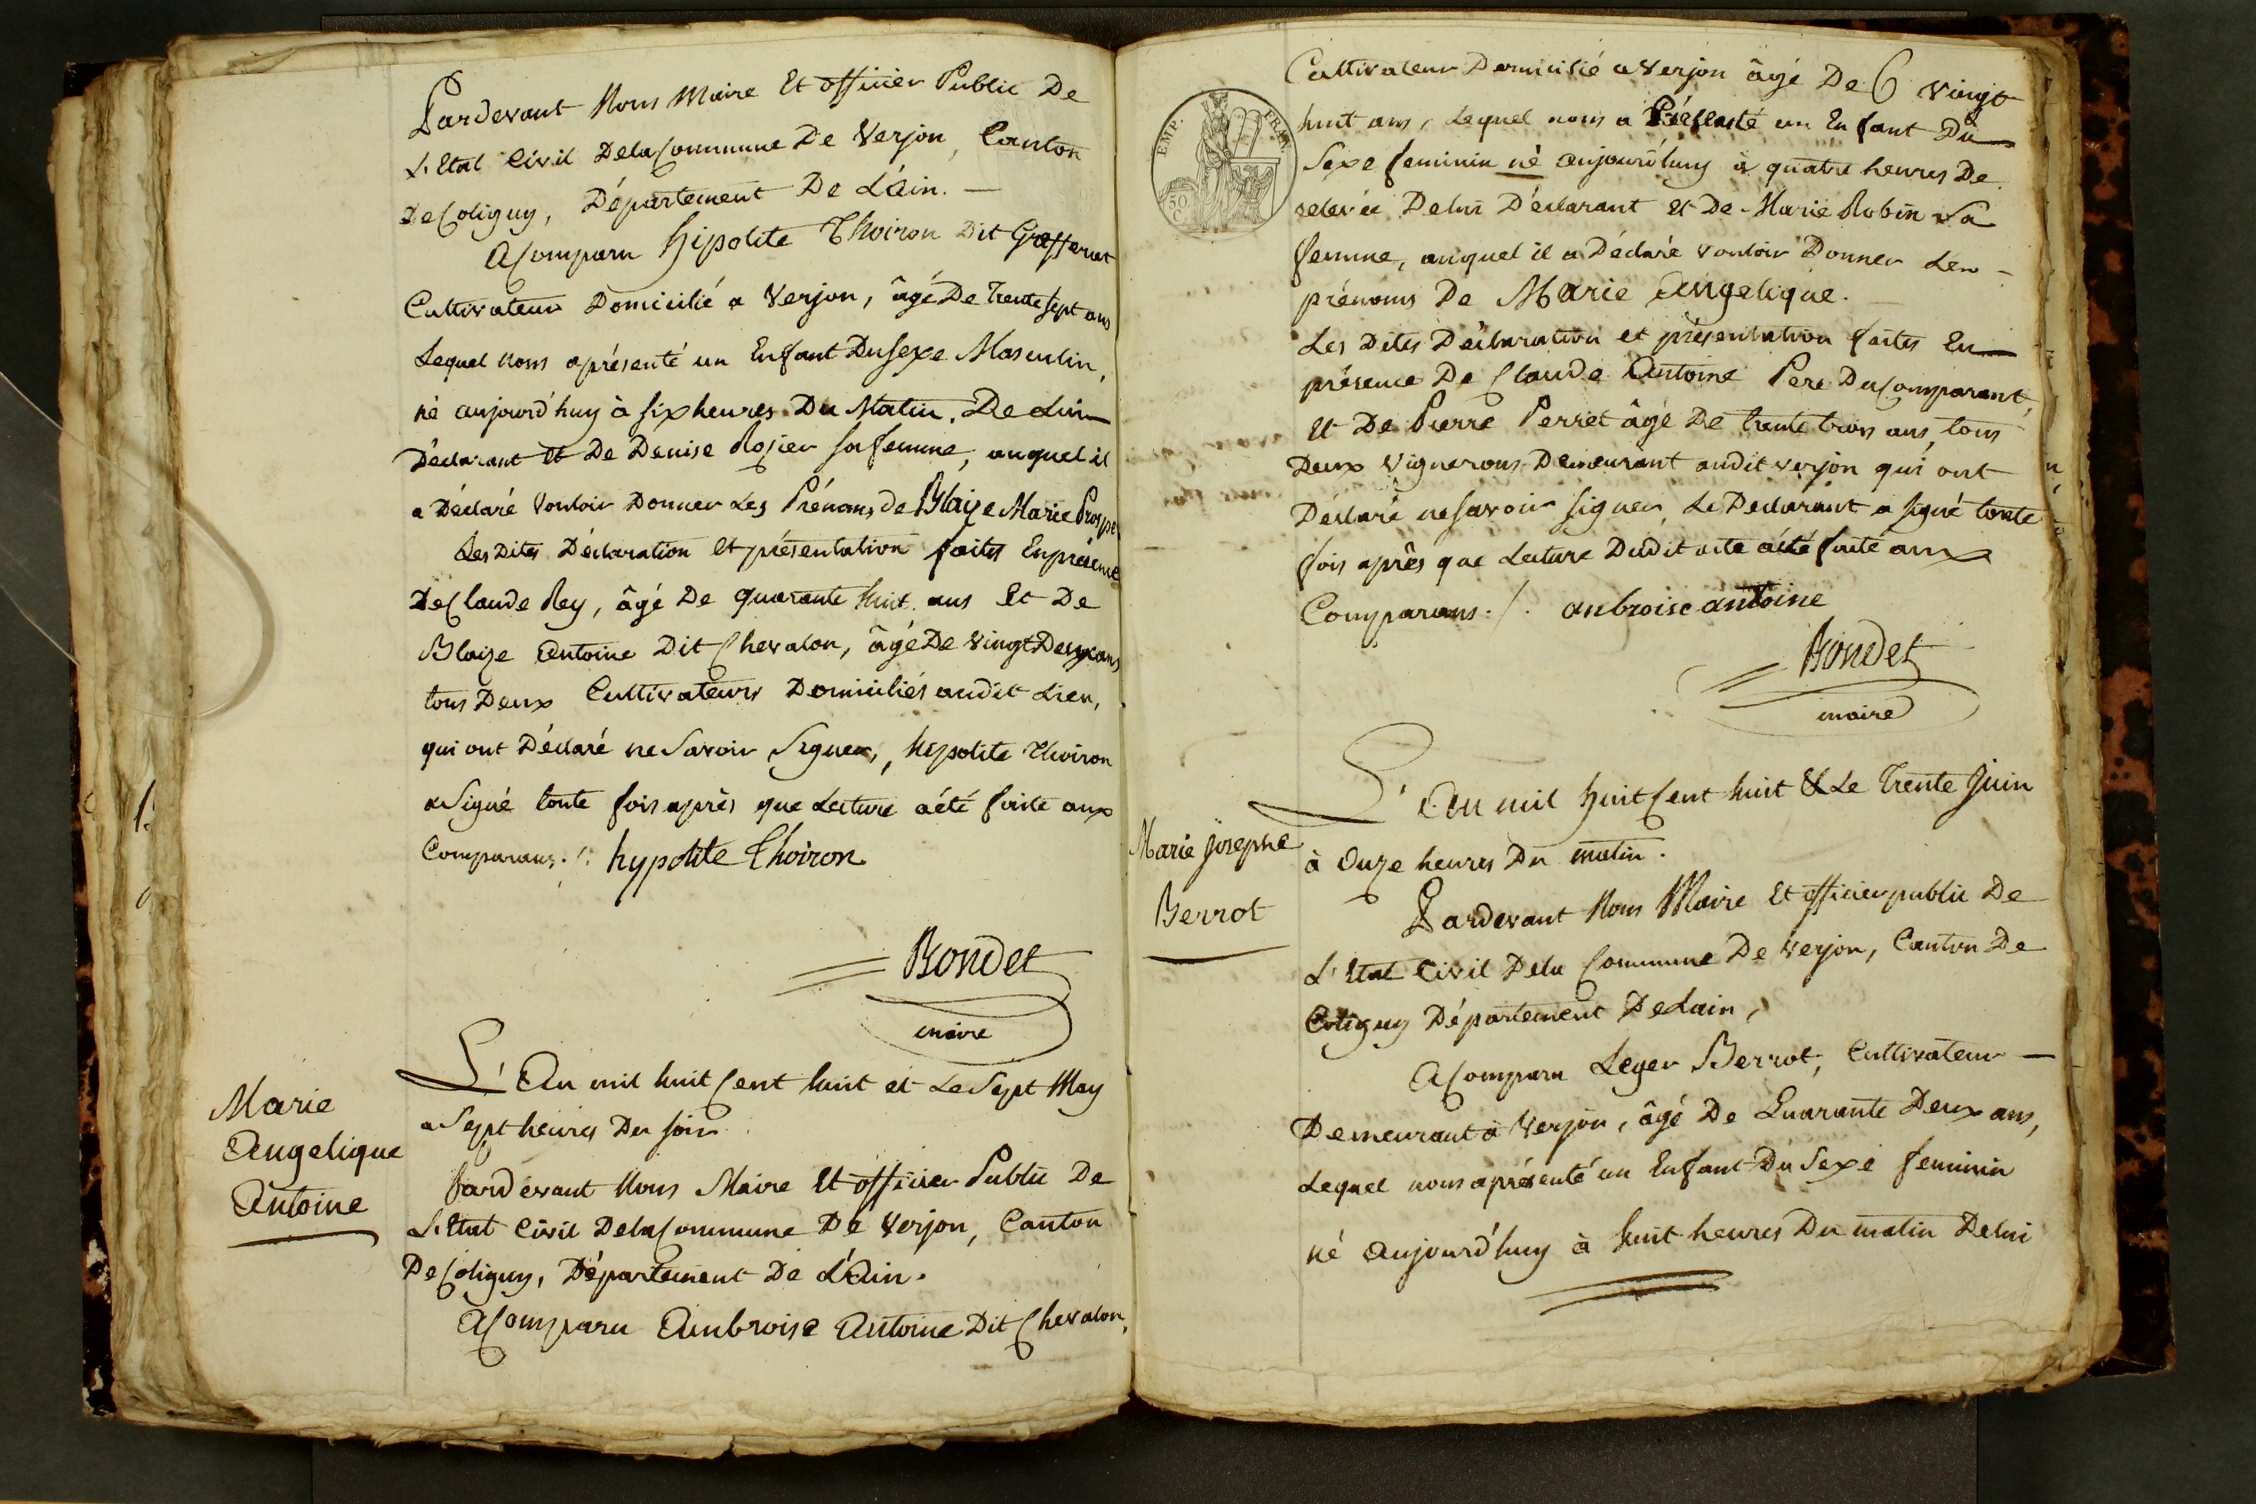 Pardevant Nous Maire Et officier Public De
L'Etat Civil Dela Commune De Verjon, Canton
De Coligny, Département De L'Ain. —
A Comparu hipolite Thoiron Dit Graffenet
Cultivateur Domicilié a Verjon, âgé De Trente sept ans
Lequel nous a présenté un Enfant Du sexe Masculin,
né aujourd'huy à six heures Du Matin, De Lui
Déclarant Et De Denise Rozier sa femme, auquel il
a Déclaré vouloir Donner Les Prénoms de Blaize Marie Prosper
Les Dites Déclaration et présentation faites En présence
De Claude Rey, âgé De quarante huit ans Et De
Blaize Antoine Dit Chevalon, âgé De Vingt Deux ans
tous Deux Cultivateurs Domiciliés audit Lieu,
qui ont Déclaré ne Savoir Signer, hypolite Thoiron
a Signé toute fois après que Lecture a été faite aux
Comparans ./. hypolite Thoiron
Bondet
maire
Marie
Angelique
Antoine
L'An mil huit Cent huit et Le Sept May
a Sept heures Du soir
Pardevant Nous Maire Et officier Public De
L'Etat Civil Dela Commune De Verjon, Canton
De Coligny, Département De L'Ain.
A Comparu Ambroise Antoine Dit Chevalon,
EMP. FRAN.
50
C
Cultivateur Domicilié a Verjon âgé De Vingt
huit ans, Lequel nous a Présenté un Enfant Du
Sexe feminin né aujourd'huy à quatre heures De
relevée Delui Déclarant et De Marie Robin Sa
femme, auquel il a Déclaré vouloir Donner Les
prénoms De Marie Angelique.
Les Dites Déclaration et présentation faites En
présence De Claude Antoine Pere Du Comparant,
Et De Pierre Perret âgé De trente trois ans, tous
Deux Vignerons Demeurant audit verjon qui ont
Déclaré ne savoir signer, Le Declarant a signé toute
fois après que Lecture Dudit acte a été faite aux
Comparans ./. anbroise antoine
Bondet
maire
Marie Josephe
Berrot
L'An mil huit Cent huit & Le Trente Juin
à Onze heures Du matin.
Pardevant Nous Maire Et officier public De
L'Etat Civil Dela Commune De Verjon, Canton De
Coligny Département De Lain,
A Comparu Leger Berrot, Cultivateur —
Demeurant à Verjon, âgé De Quarante Deux ans,
Lequel nous a présenté un Enfant Du Sexe feminin
né Aujourd'huy à huit heures Du matin Delui